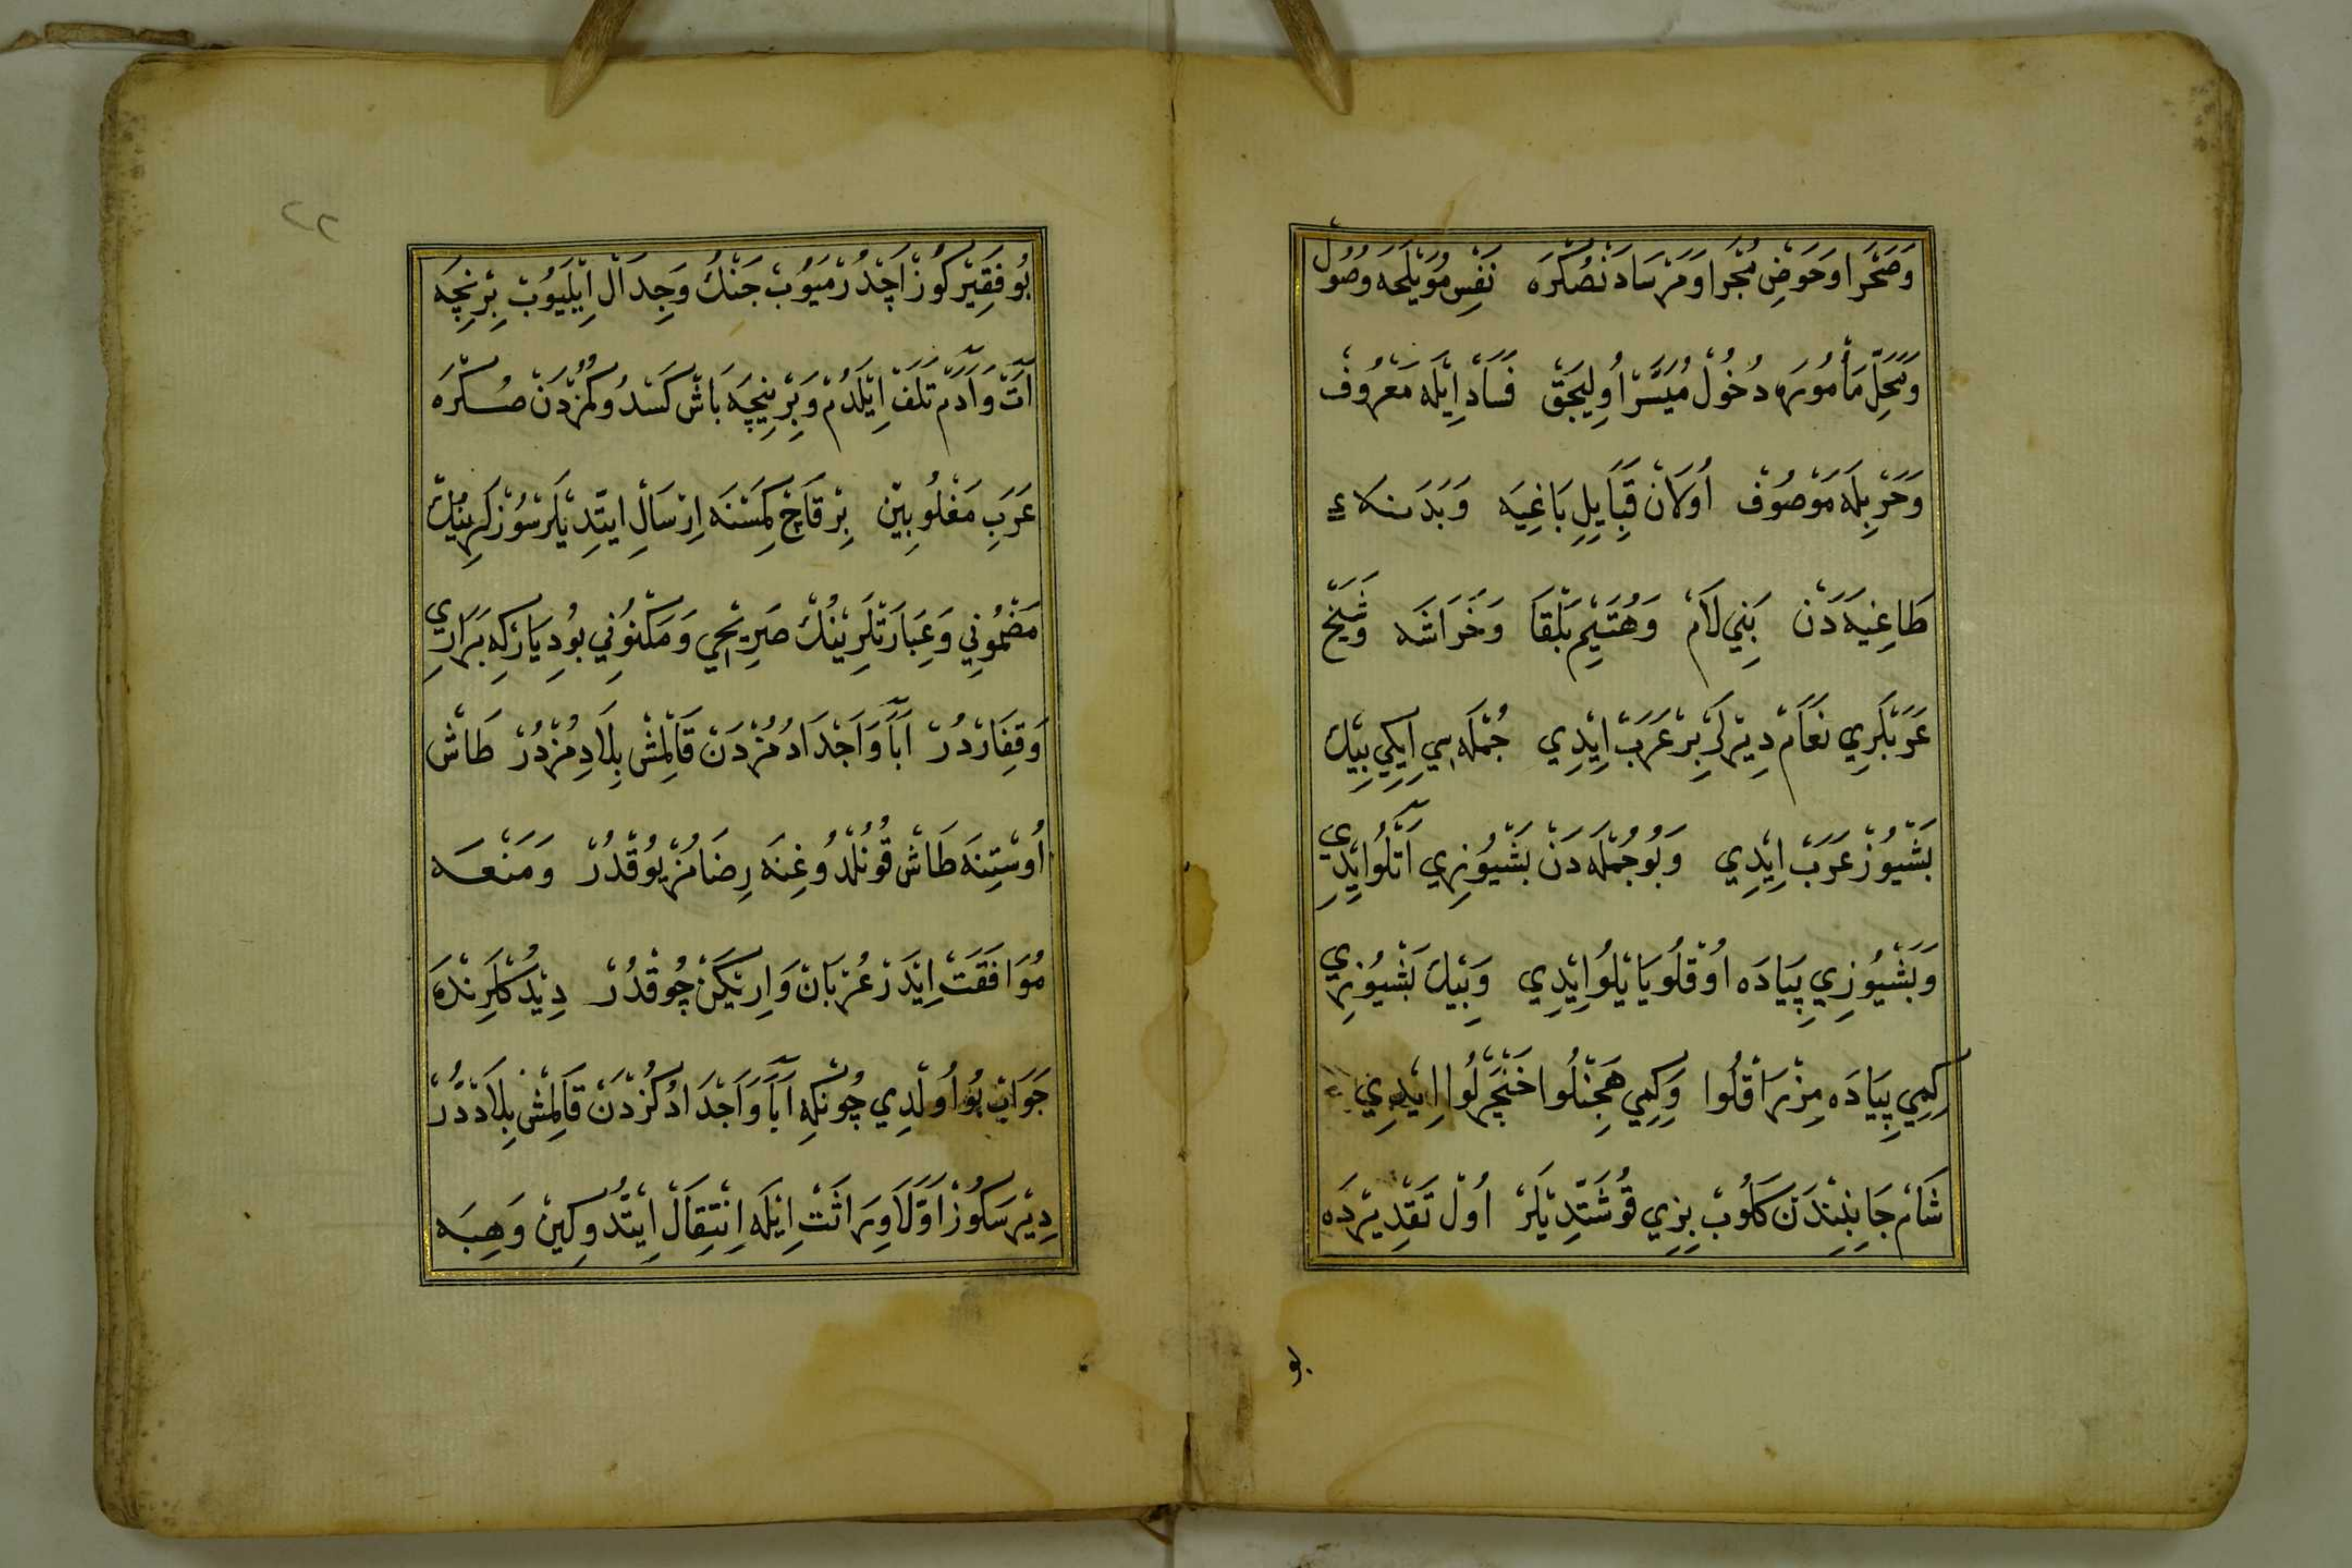 وَصَحْرَا وَحَوْضِ مُجْرَا وَمَرْسَادَنْصُكْرَه نَفْسِ مُوَيْلَحَه وُصُولْ
وَمَحَلِّ مَأْمُورَه دُخُولْ مُيَسَّرْ اُولِيجَقْ فَسَادْ اِيلَه مَعْرُوفْ
وَحَرْبِلَه مَوْصُوفْ اُولَانْ قَبَايِلِ بَاغِيَه وَبَدَنـَـلاءِ
طَاغِيَه دَنْ بَنِي لَامْ وَهُتَيْم بَلْقَا وَخَرَاشَه وَشَيْخْ
عَرَبْلَرِي نَعَامْ دِيرْلَرْ بِرْ عَرَبْ اِيْدِي جُمْلَه سِي اِيكِي بِيكْ
بَشْيُوزْ عَرَبْ اِيْدِي وَبُو جُمْلَه دَنْ بَشْيُوزِي آتْلُو اِيْدِي
وَبَشْيُوزِي پِيَادَه اُوقْلُو يَايْلُو اِيْدِي وَبِيكْ بَشْيُوزِي
كِمِي پِيَادَه مِزْرَاقْلُوا وَكِمِي هَجِنْلُوا خَنْجَرْلُوا اِيْدِي
شَامْ جَانِبِنْدَنْ كَلُوبْ بِزِي قُوشَتْدِيلَرْ اُولْ تَقْدِيرْدَه
بو
٢٢
بُو فَقِيرْ كُوزْ آچْدُرْمَيُوبْ جَنْكُ وَجِدَالْ اِيْلَيُوبْ بِرْنِچَه
آتْ وَآدَمْ تَلَفْ اِيْلَدُمْ وَبِرْنِيچَه بَاشْ كَسْدُوكُمْزْدَنْ صُـكْرَه
عَرَبِ مَغْلُوبِينْ بِرْ قَاچْ كِمَسْنَه اِرْسَالِ ايتْدِيلَرْ سُوزْلَرِينُكْ
مَضْمُونِي وَعِبَارَتْلَرِينُكْ صَرِيحِي وَمَكْنُونِي بُودِيَارْكِه بَرَارِي
وَقِفَارْدُرْ آبَا وَاَجْدَادُمُزْدَنْ قَالْمِشْ بِلَادِمُزْدُرْ طَاشْ
اُوسْتِنَه طَاشْ قُونُلْدُوغِنَه رِضَامُزْ يُوقْدُرْ وَمَنْعَـه
مُوَافَقَتْ اِيدَرْ عُرْبَانْ وَارِيكَنْ چُوقْدُرْ دِيدُكْلَرِنْدَه
جَوَابْ بُو اُولْدِي چُونْكِه آبَا وَاَجْدَادُكُزْدَنْ قَالْمِشْ بِلَادْدُرْ
دِيرْسَكُوزْ اَوَّلَا وِرَاثَتْ اِيْلَه اِنْتِقَالْ اِيتْدُوكِينْ وَهِبَه